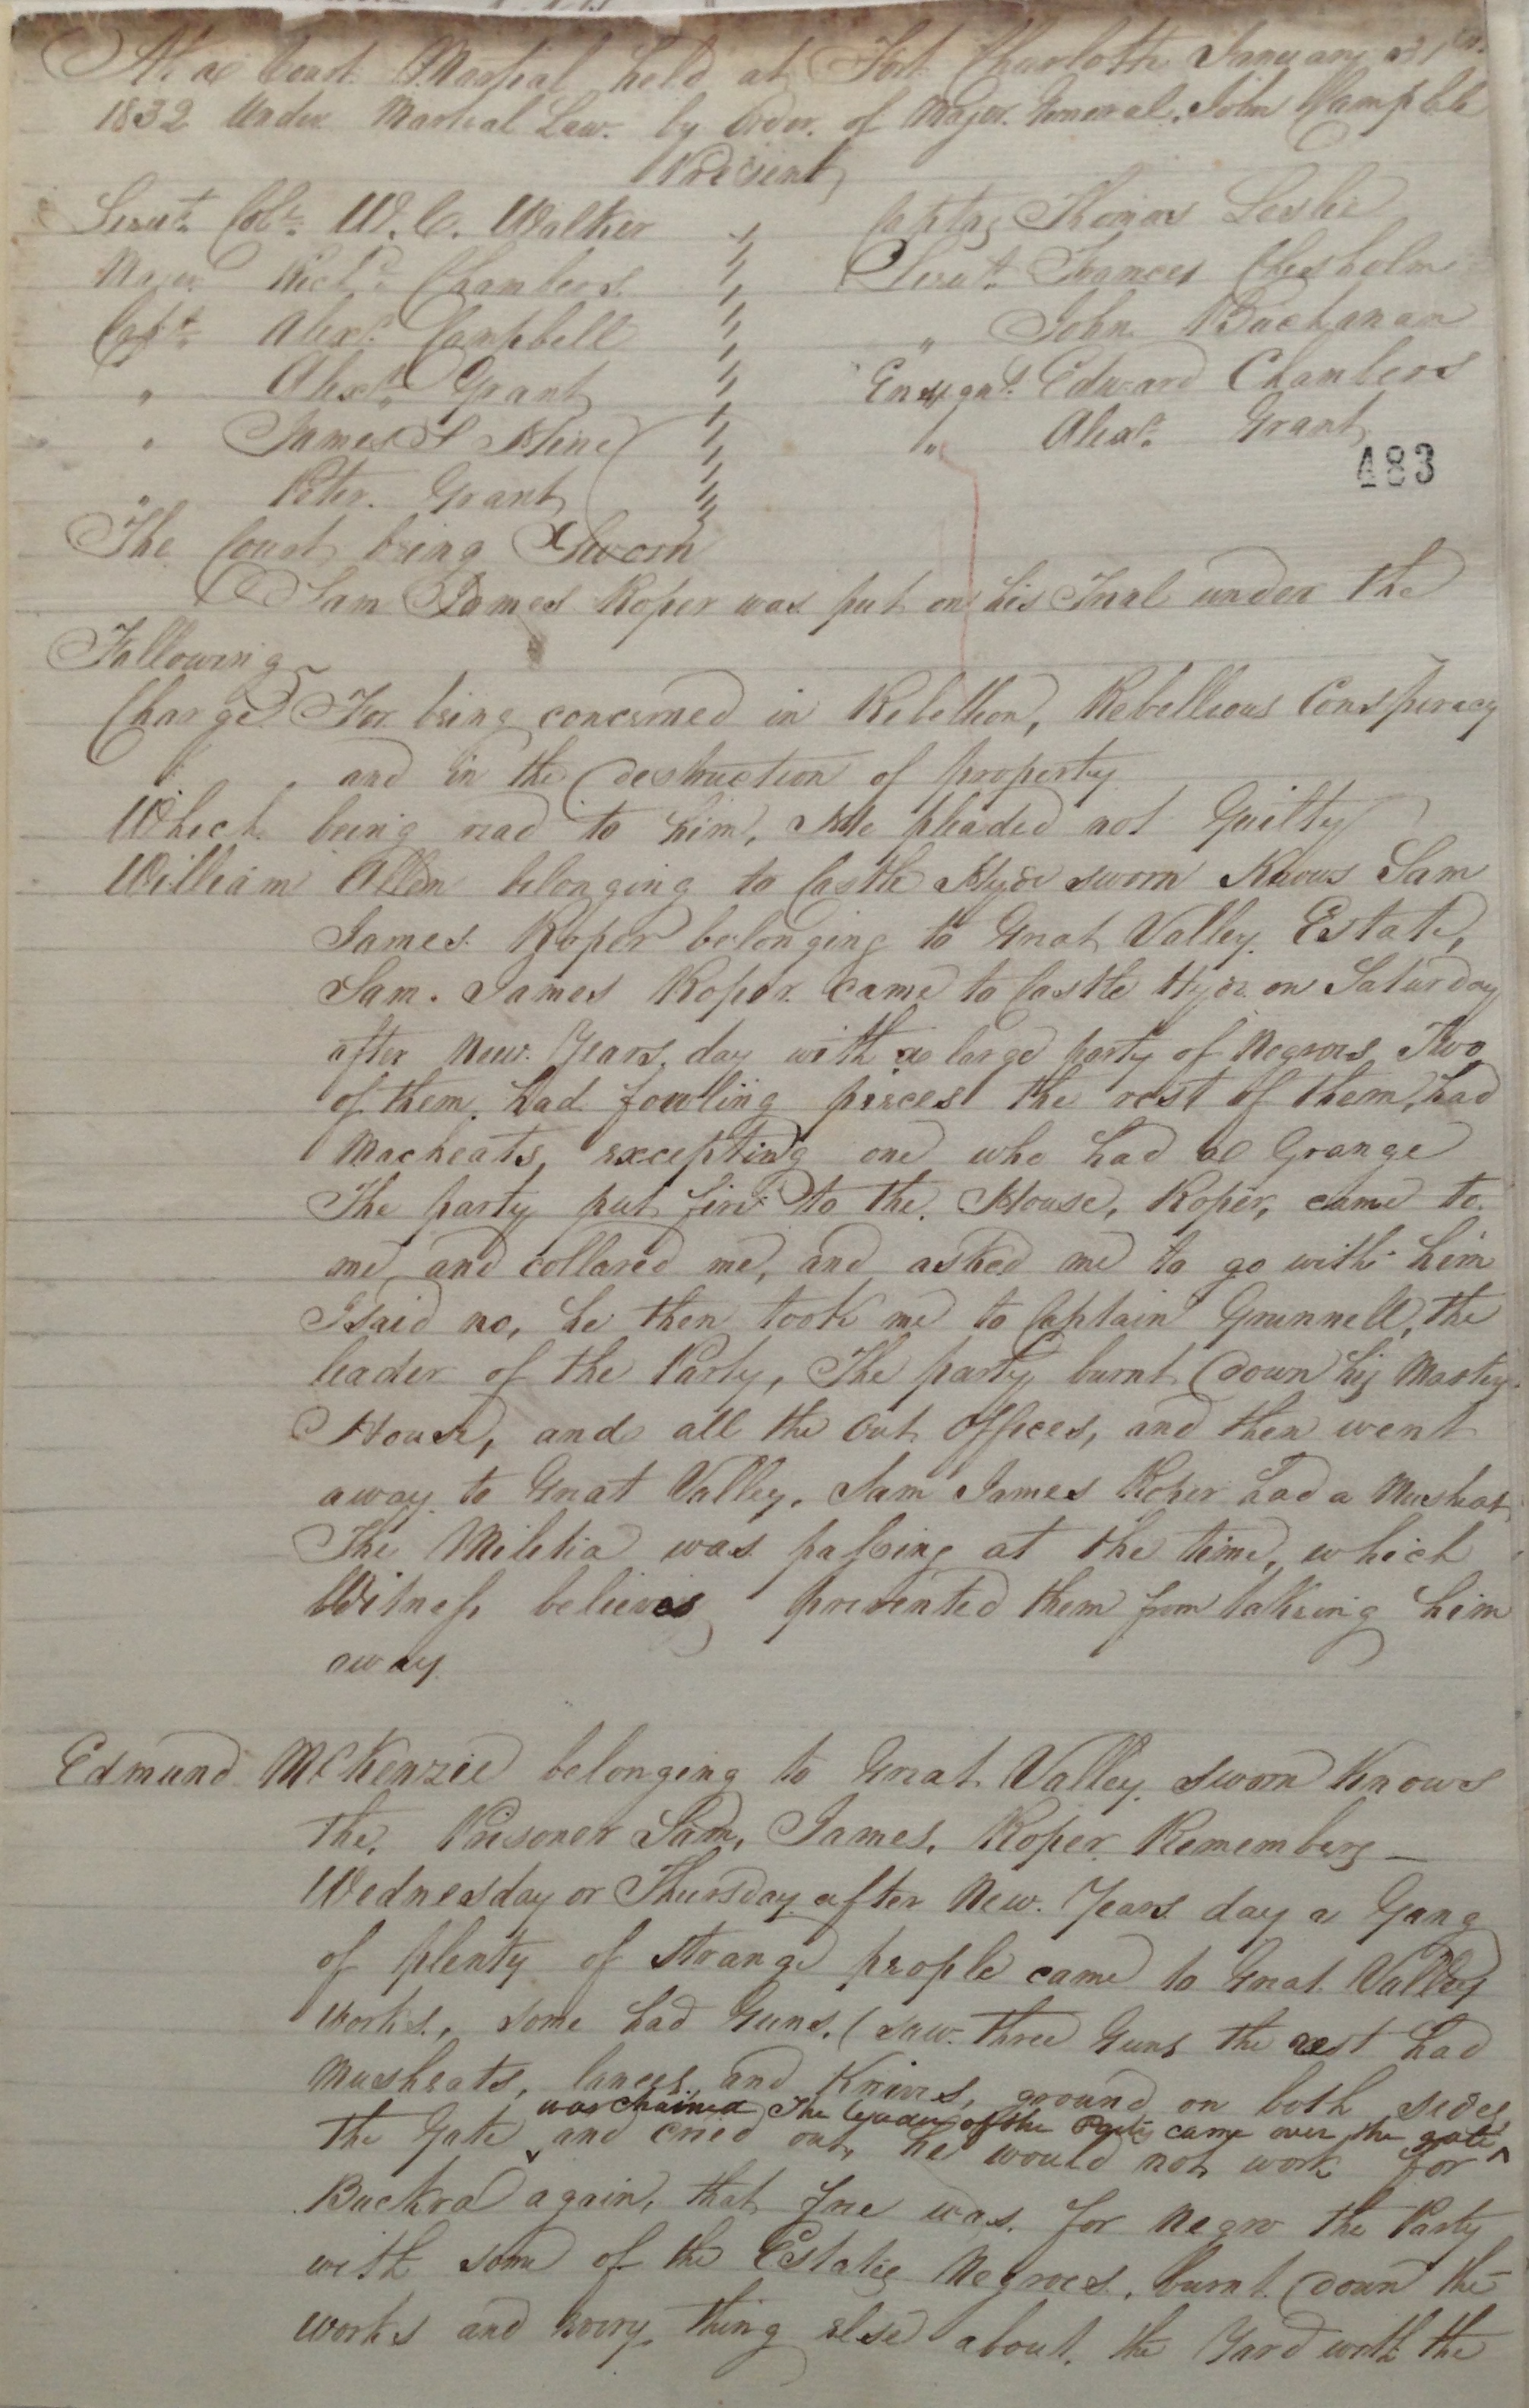 At a Court Martial held at Fort Charlotte January 31st
1832 Under Martial Law by order of Major General John Campble
Present
Lieut. Coln. W. C. Walker " Captas Thomas Leslie
Major Richd. Chambers " Lieut. Frances Chesholm
Capt. Alexr. Campbell " " John Buchanan
" Alexr. Grant " Ensignt. Edward Chambers
" James S Hine " " Alexr. Grant
" Peter Grant "
483
The Court being Sworn
Sam James Roper was put on his Trial under the
Following
Charge For being concerned in Rebellion, Rebellious Conspiracy
and in the destruction of property
Which being read to him, He pleaded not Guilty
William Allen belonging to Castle Hyde sworn Knows Sam
James Roper belonging to Great Valley Estate,
Sam. James Roper came to Castle Hyde on Saturday
after New Years day with a large party of Negroes Two
of them had fowling pieces the rest of them had
Macheats, excepting one who had a Grange
The party put fire to the House, Roper, came to
me and collared me, and asked me to go with him
I said no, he then took me to Captain Grunnell, the
leader of the Party, The party burnt down his Masters
House, and all the out offices, and then went
away to Great Valley, Sam James Roper had a Musheat
The Militia was passing at the time, which
Witness believes prevented them from takeing him
away
Edmund McKenzie belonging to Great Valley sworn Knows
the Prisoner Sam, James, Roper Remembers
Wednesday or Thursday after New Years day a Gang
of plenty of strange people came to Great Valley
works, some had Guns, (saw three Guns the rest had
Musheats, lances and Knives, ground on both sides,
was chained The leader of the Party came over the gate
the Gate and cried out, he would not work for
Buckra again, that free was for Negro the Party
with some of the Estates Negroes, burnt down the
works and every thing else about the Yard with the